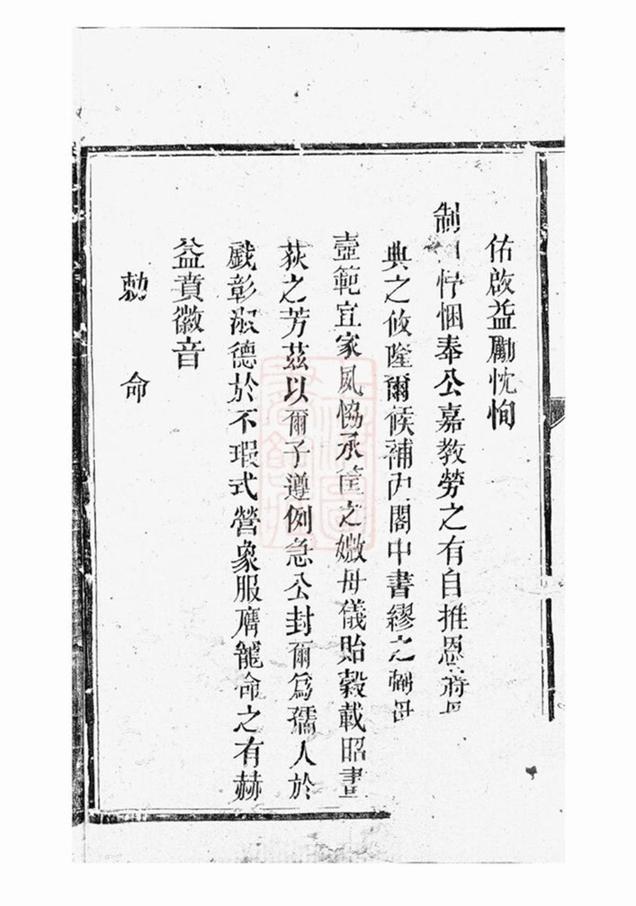 佑啟益勵忱恂
制曰悃奉公嘉教勞之有自推恩將母
典之攸隆爾候補內閣中書繆之弼母
壼範宜家夙恊承筐之媺母儀貽穀載昭畫
荻之芳茲以爾子遵例急公封爾爲孺人於
戲彰淑德於不瑕式營象服膺寵命之有赫
益賁徽音
勅命